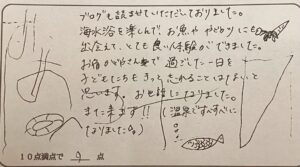 ブログも読ませていただいておりました。
海水浴を楽しんで、お魚や やどかりにも
出会えて、とても良い体験ができました。
お宿 かどやさん で過ごした一日を
子どもたちもきっと忘れることはないと
思います。お世話になりました。
また来ます!!(温泉ですべすべに
なりました。)
10点満点で 9 点